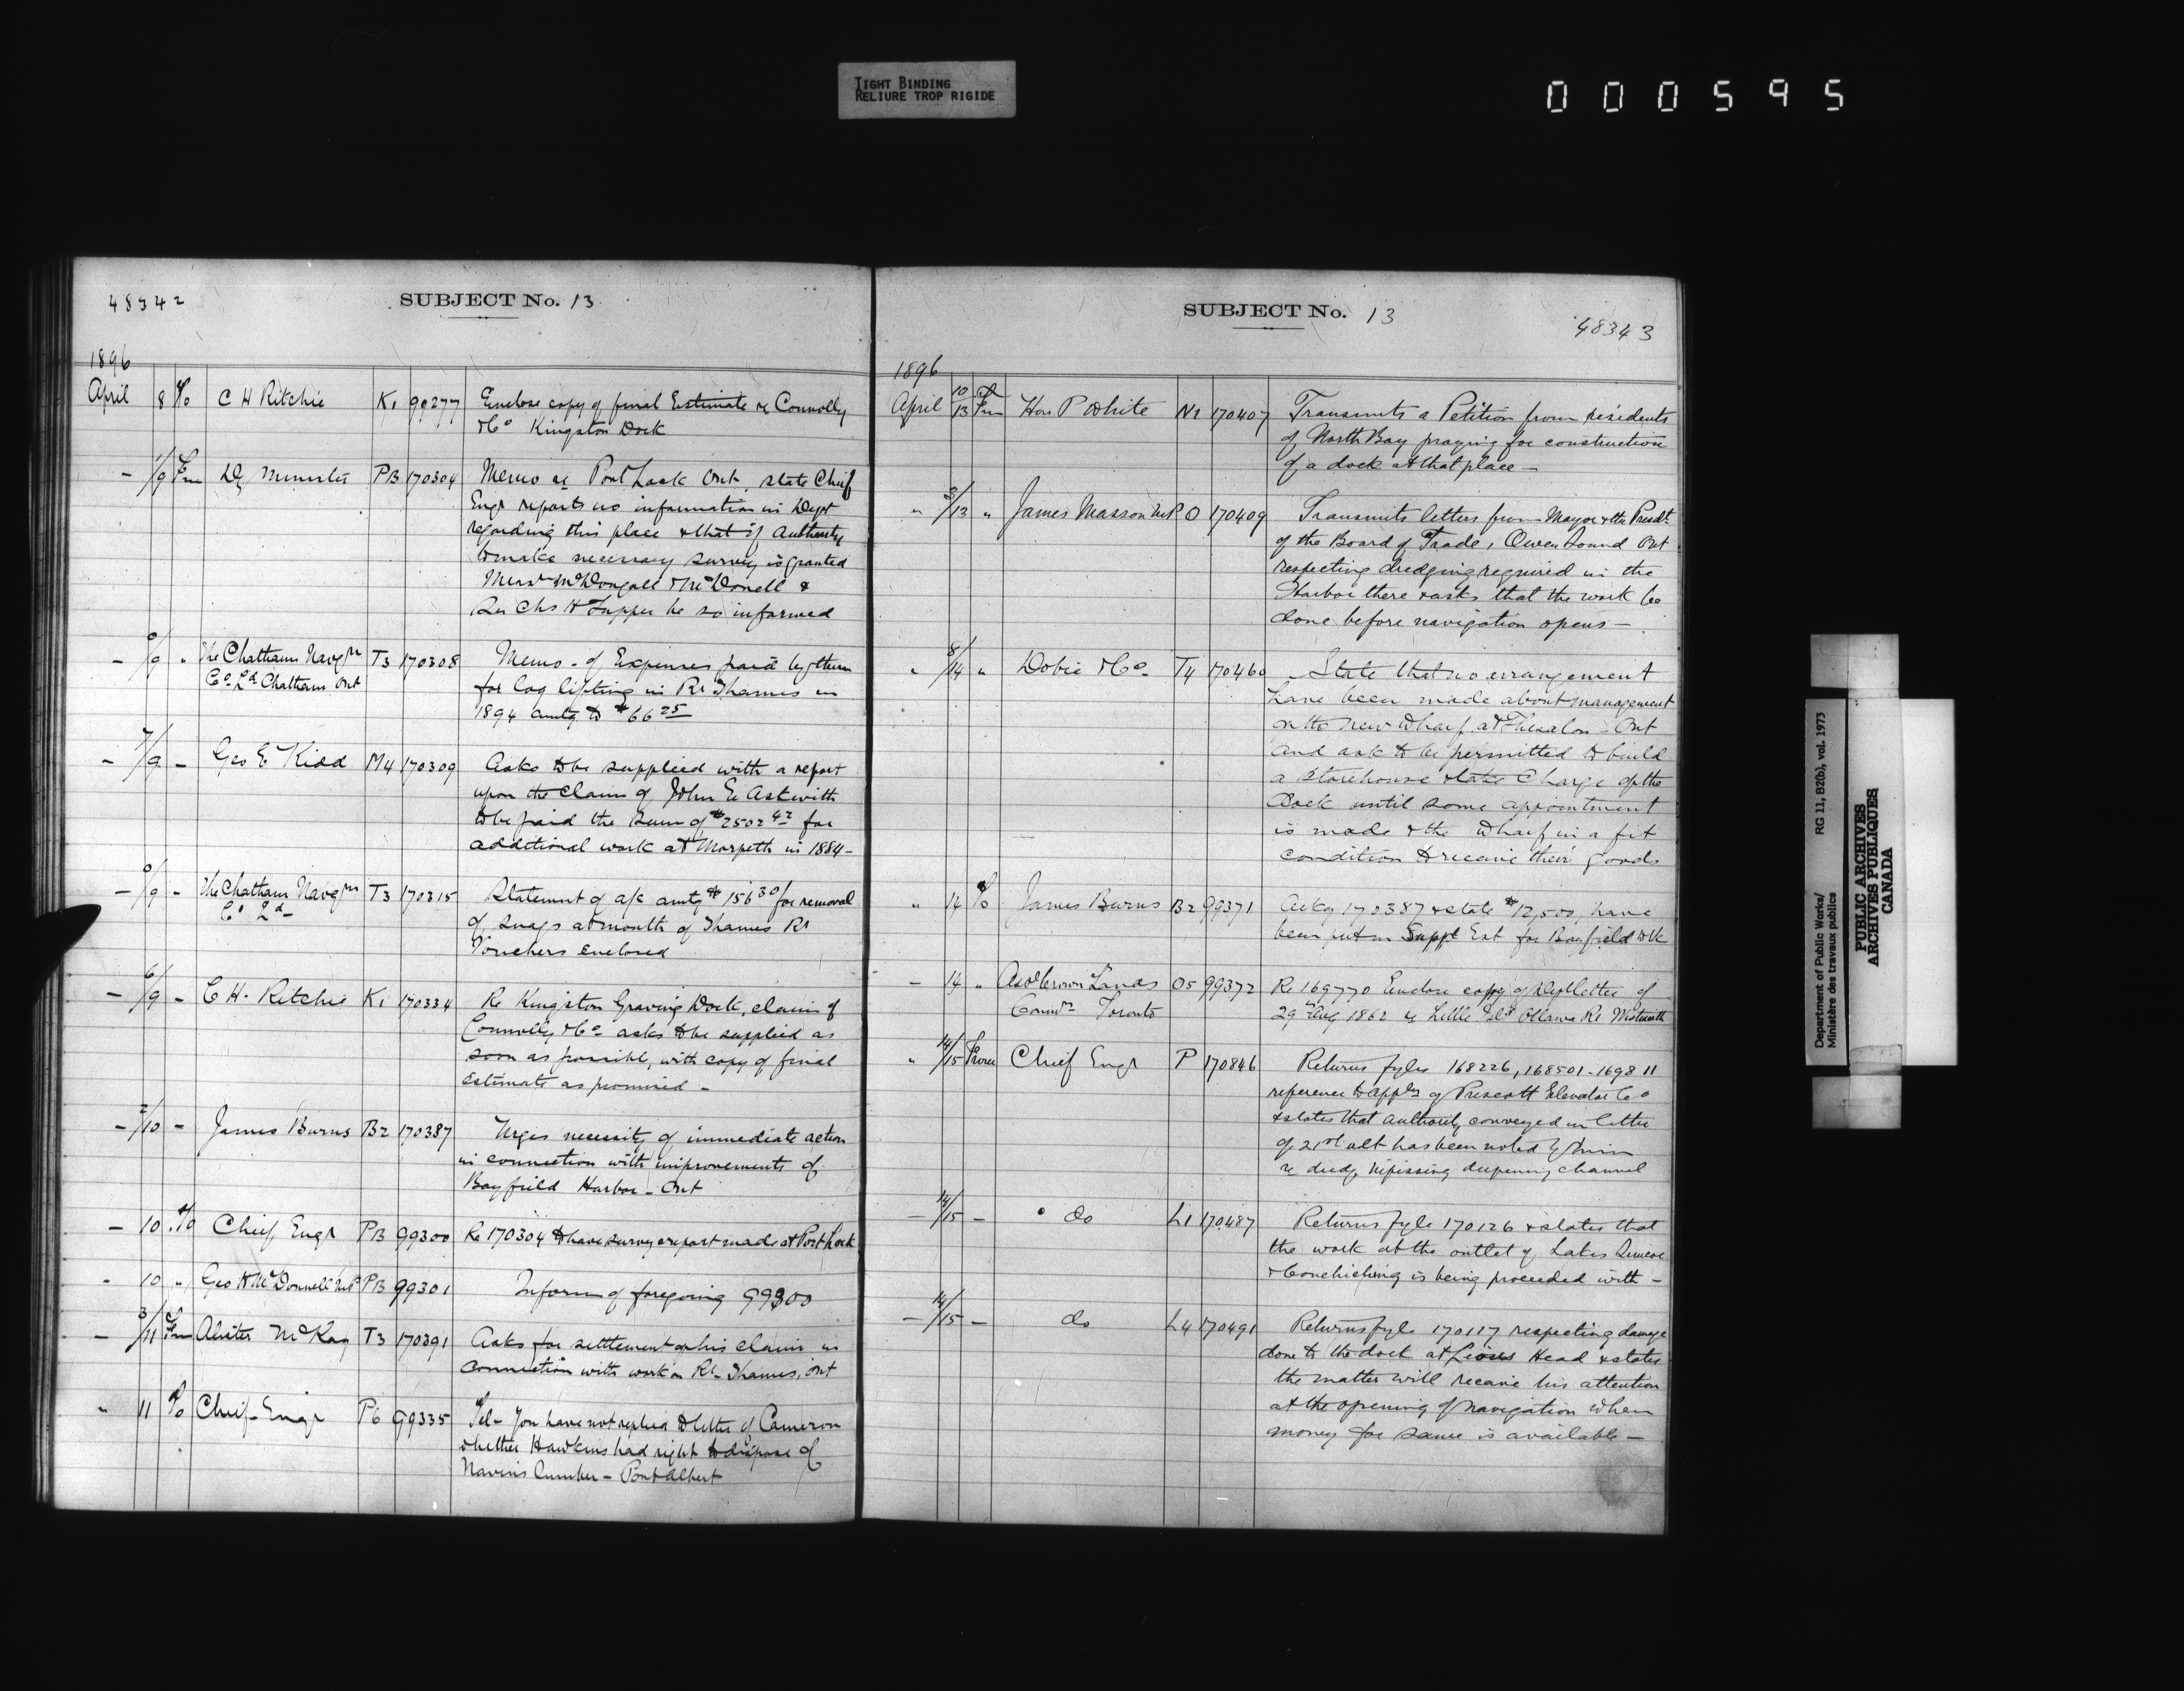 TIGHT BINDING
RELIURE TROP RIGIDE
000595
48342
SUBJECT No. 13
1896
April 8 To C H Ritchie K1 99277 Enclose copy of final Estimate re Connolly
& Co Kingston Dock
— 1/9 Fm Dy Minister PB 170304 Memo re Port Lock Ont. state Chief
Engr reports no information in Dept
regarding this place & that if Authority
to make necessary survey is granted
Messrs McDougall & McDonell &
Sir Chs H Tupper be so informed
— 9/9 " The Chatham Navgtn T3 170308 Memo - of Expenses paid by them
Co Ld Chatham Ont for log lifting in Rr Thames in
1894 amtg to $66 25
— 7/9 — Geo E Kidd M4 170309 Asks to be supplied with a report
upon the claim of John E Askwith
to be paid the sum of $2502 42 for
additional work at Morpeth in 1884 —
— 9/9 — The Chatham Navgtn T3 170315 Statement of a/c amtg $156 30 for removal
Co Ld — of snags at mouth of Thames Rr
Vouchers enclosed
— 6/9 — C H. Ritchie K1 170334 Re Kingston Graving Dock, claim of
Connolly & Co asks to be supplied as
soon as possible, with copy of final
Estimate as promised —
— 2/10 — James Burns B2 170387 Urges necessity of immediate action
in connection with improvements of
Bayfield Harbor — Ont
— 10 To Chief Engr PB 99300 Re 170304 to have survey & report made at Port Lock
" 10 " Geo H McDonnell MP PB 99301 Inform of foregoing 99300
— 3/11 Fm McKay T3 170391 Asks for settlement of his claim in
connection with work on Rr Thames, Ont
" 11 To Chief Engr P6 99335 Tel — You have not replied to letter of Cameron
whether Hawkins had right to dispose of
Port Albert
SUBJECT No. 13
48343
1896
April 10/13 Fm Hon P White N1 170407 Transmits a Petition from residents
of North Bay praying for construction
of a dock at that place —
" 3/13 " James Masson MP O 170409 Transmits letters from Mayor & the Presdt
of the Board of Trade, Owen Sound Ont
respecting dredging required in the
Harbor there & asks that the work be
done before navigation opens —
" 8/14 " Dobie & Co T4 170460 State that no arrangement
have been made about management
on the new wharf at Thessalon Ont
and ask to be permitted to build
a storehouse & take charge of the
Dock until some appointment
is made & the wharf in a fit
condition to receive their goods
" 14 To James Burns B2 99371 Ackg 170387 & state $12,500, have
been put in Suppl Est for Bayfield Wk
— 14 " Crown Lands O5 99372 Re 169770 Enclose copy of Dept letter of
Toronto 29th Aug 1862 re Little Isld Ottawa Rr
" 14/15 From Chief Engr P 170846 Returns fyles 168226, 168501 - 169811
reference to appln of Prescott Elevator Co
& states that authority conveyed in letter
of 21st ult has been noted by him
re dredge Nipissing deepening channel
— 14/15 — do L1 170487 Returns fyle 170126 & states that
the work at the outlet of Lakes Simcoe
& Couchiching is being proceeded with —
— 14/15 — do L4 170491 Returns fyle 170117 respecting damage
done to the dock at Lions Head & states
the matter will receive his attention
at the opening of navigation when
money for same is available —
Department of Public Works/ RG 11, B2(b), vol. 1973
Ministère des travaux publics
PUBLIC ARCHIVES
ARCHIVES PUBLIQUES
CANADA